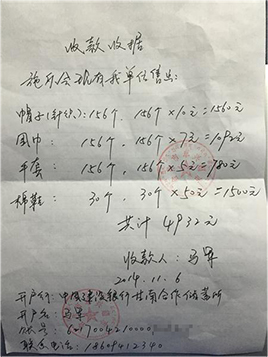 收款收据
施乐会现有我单位售出:
帽子(针织):156个, 156个×10元=1560元
围巾: 156个, 156个×7元=1092元
手套: 156个, 156个×5元=780元
棉鞋: 30个, 30个×50元=1500元
共计 4932元
收款人:马军
2014.11.6
开户行:中国建设银行甘南合作储蓄所
开户名:马军
联系电话:18609412340